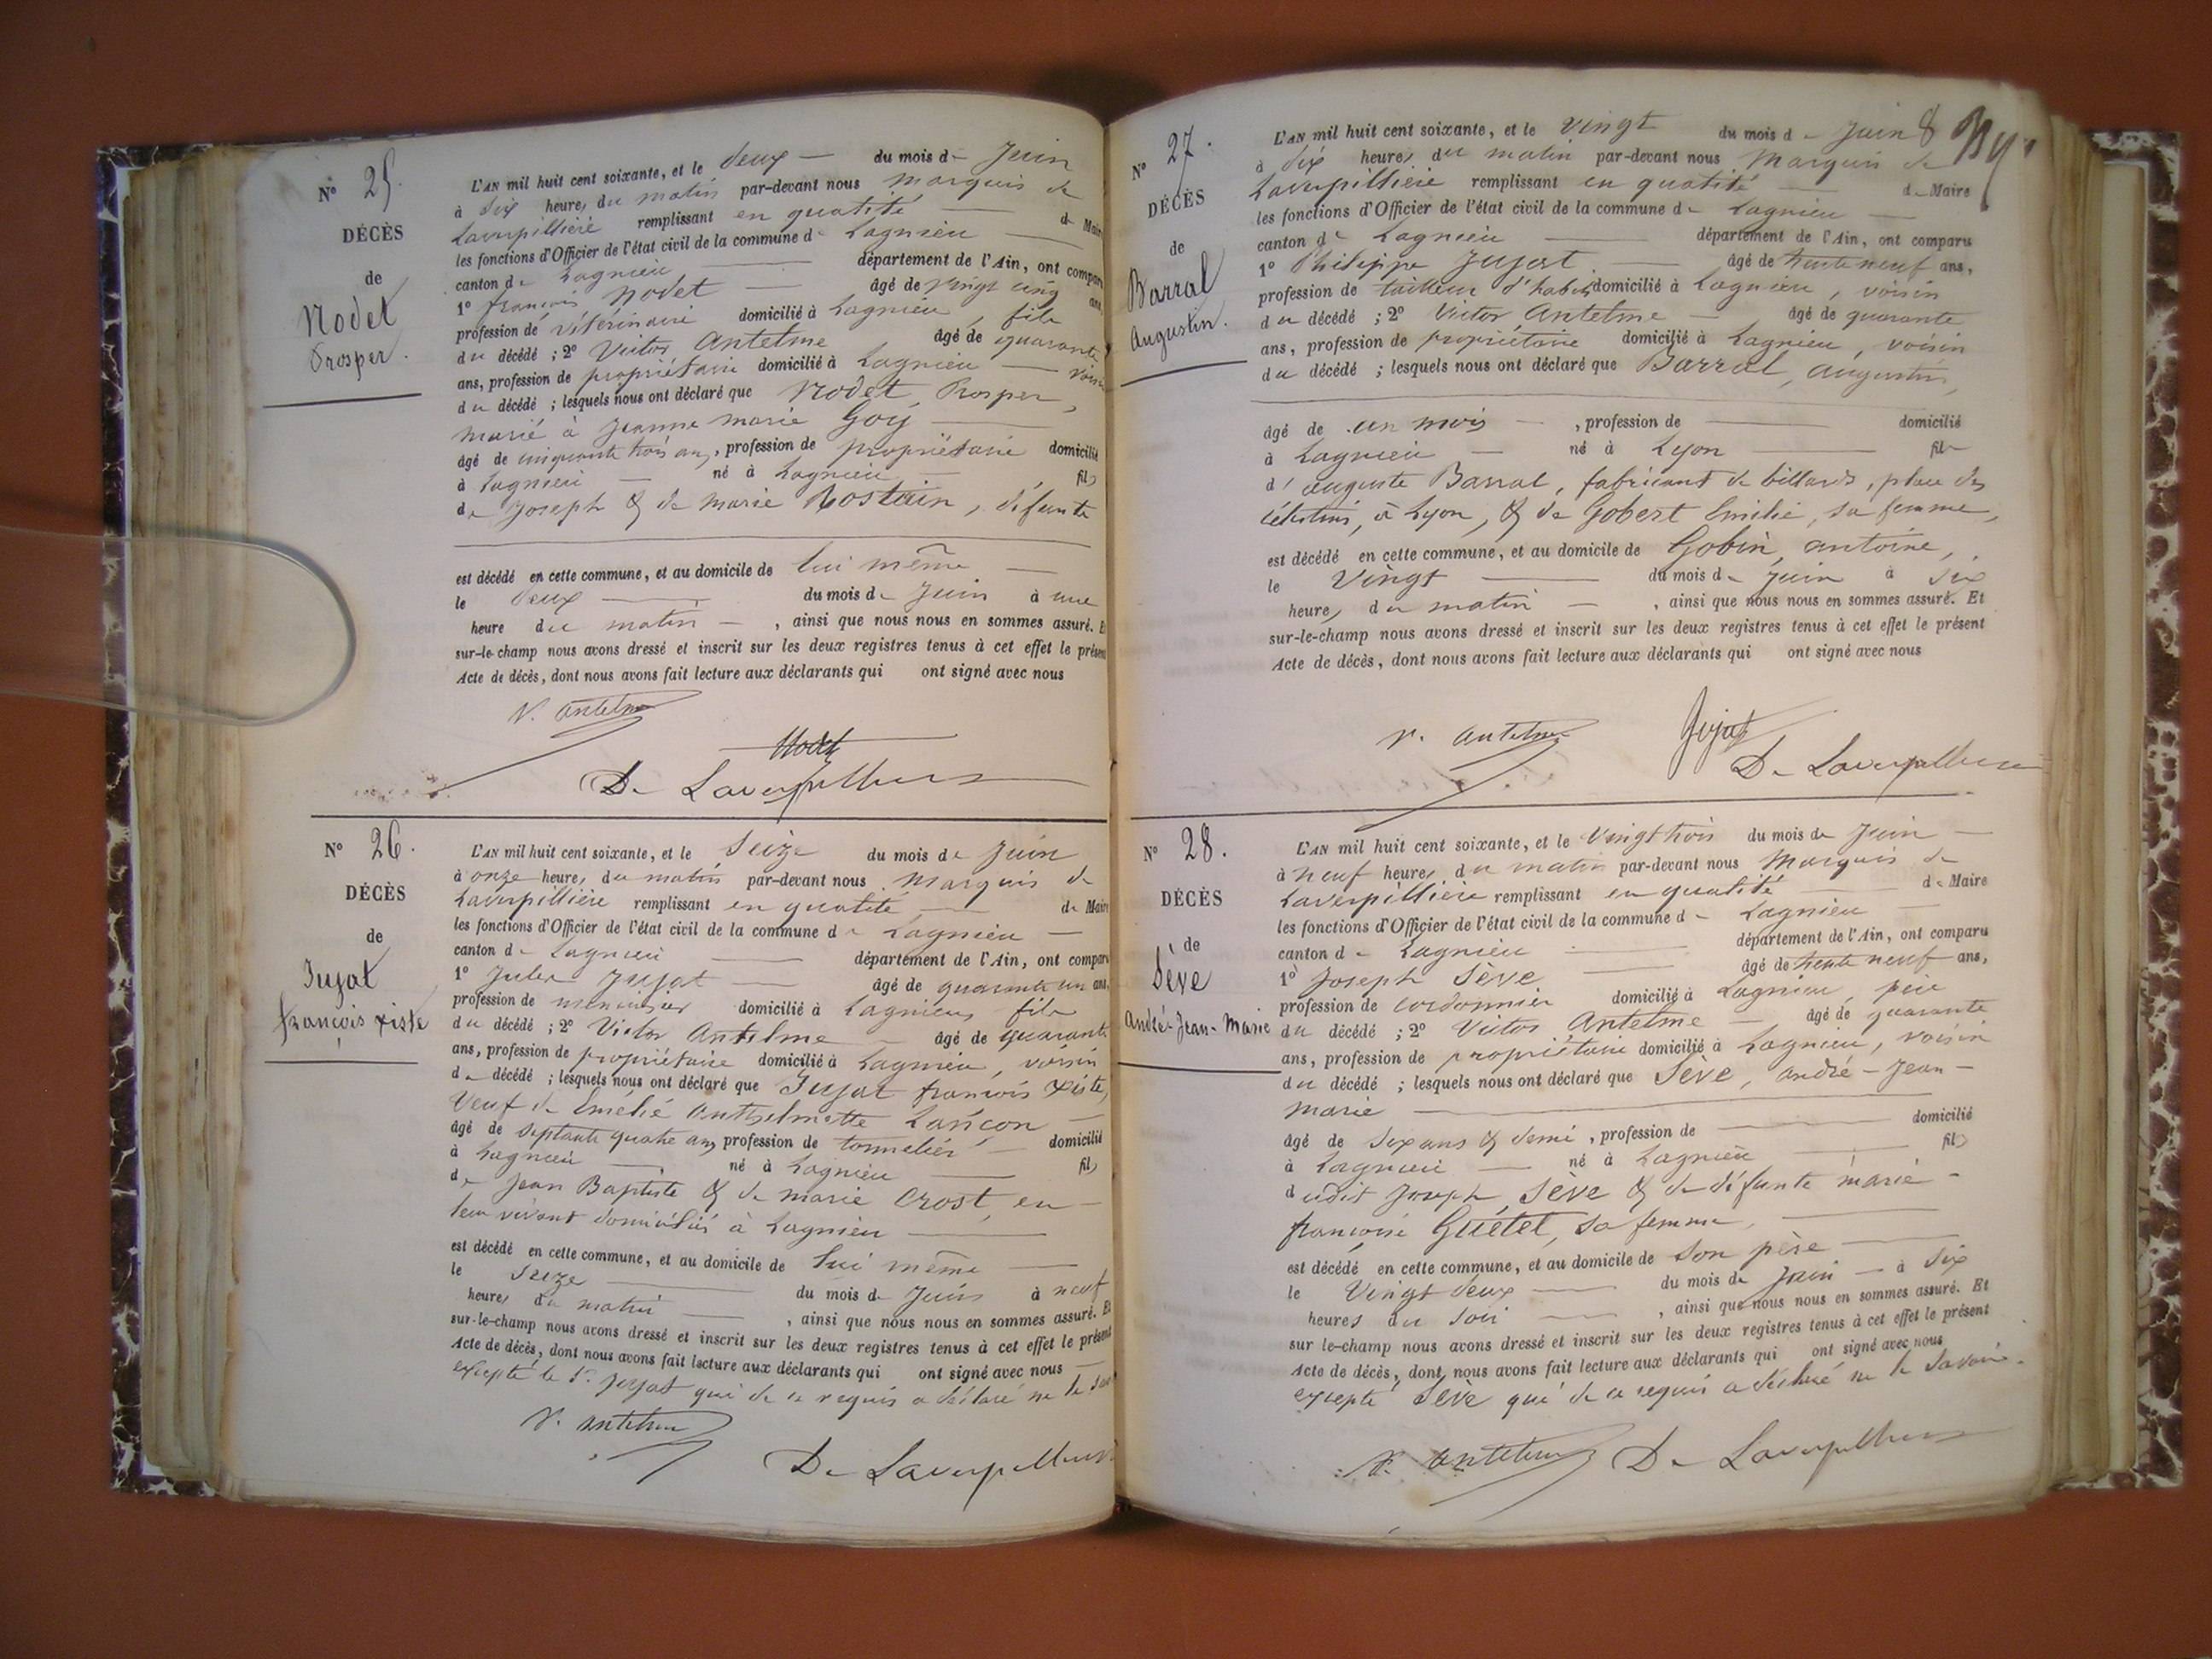 N° 25.
DÉCÈS
de
Nodet
Prosper.
L'AN mil huit cent soixante, et le deux du mois de Juin
à dix heures du matin par-devant nous Marquis de
Laverpillière remplissant en qualité de Maire
les fonctions d'Officier de l'état civil de la commune de Lagnieu
canton de Lagnieu département de l'Ain, ont comparu
1° françois Nodet âgé de vingt cinq ans,
profession de vétérinaire domicilié à Lagnieu, fils
du décédé ; 2° Victor Antelme âgé de quarante
ans, profession de propriétaire domicilié à Lagnieu voisin
du décédé ; lesquels nous ont déclaré que Nodet, Prosper,
marié à Jeanne marie Goy
âgé de cinquante trois ans, profession de propriétaire domicilié
à Lagnieu né à Lagnieu fils
de Joseph & de marie Rostain, défunte
est décédé en cette commune, et au domicile de lui même
le deux du mois de Juin à une
heure du matin , ainsi que nous nous en sommes assuré. Et
sur-le-champ nous avons dressé et inscrit sur les deux registres tenus à cet effet le présent
Acte de décès, dont nous avons fait lecture aux déclarants qui ont signé avec nous
V. Antelme
Nodet
De Laverpilliere
N° 26.
DÉCÈS
de
Jujat
françois xiste
L'AN mil huit cent soixante, et le Seize du mois de Juin
à onze heures du matin par-devant nous Marquis de
Laverpillière remplissant en qualité de Maire
les fonctions d'Officier de l'état civil de la commune de Lagnieu
canton de Lagnieu département de l'Ain, ont comparu
1° Jules Jujat âgé de quarante un ans,
profession de menuisier domicilié à Lagnieu, fils
du décédé ; 2° Victor Antelme âgé de quarante
ans, profession de propriétaire domicilié à Lagnieu, voisin
du décédé ; lesquels nous ont déclaré que Jujat françois xiste,
Veuf de Emélie Anthelmette Lançon
âgé de septante quatre ans, profession de tonnelier domicilié
à Lagnieu né à Lagnieu fils
de Jean Baptiste & de marie Crost, en
leur vivant domiciliés à Lagnieu
est décédé en cette commune, et au domicile de lui même
le seize du mois de Juin à neuf
heures du matin , ainsi que nous nous en sommes assuré. Et
sur-le-champ nous avons dressé et inscrit sur les deux registres tenus à cet effet le présent
Acte de décès, dont nous avons fait lecture aux déclarants qui ont signé avec nous
excepté le Sr. Jujat qui de ce requis a déclaré ne le
V. Antelme
De Laverpilliere
N° 27.
DÉCÈS
de
Barral
Augustin.
L'AN mil huit cent soixante, et le vingt du mois de Juin 8
à dix heures du matin par-devant nous Marquis de
Laverpillière remplissant en qualité de Maire
les fonctions d'Officier de l'état civil de la commune de Lagnieu
canton de Lagnieu département de l'Ain, ont comparu
1° Philippe Jujat âgé de trente neuf ans,
profession de tailleur d'habits domicilié à Lagnieu, voisin
du décédé ; 2° Victor Antelme âgé de quarante
ans, profession de propriétaire domicilié à Lagnieu, voisin
du décédé ; lesquels nous ont déclaré que Barral, augustin,
âgé de un mois , profession de domicilié
à Lagnieu né à Lyon fils
d'auguste Barral, fabricant de billards, place des
Célestins, à Lyon, & de Gobert Emilie, sa femme,
est décédé en cette commune, et au domicile de Gobin, antoine,
le Vingt du mois de Juin à six
heures du matin , ainsi que nous nous en sommes assuré. Et
sur-le-champ nous avons dressé et inscrit sur les deux registres tenus à cet effet le présent
Acte de décès, dont nous avons fait lecture aux déclarants qui ont signé avec nous
V. Antelme
Jujat
De Laverpilliere
N° 28.
DÉCÈS
de
Sève
André-Jean-Marie
L'AN mil huit cent soixante, et le Vingt trois du mois de Juin
à neuf heures du matin par-devant nous Marquis de
Laverpillière remplissant en qualité de Maire
les fonctions d'Officier de l'état civil de la commune de Lagnieu
canton de Lagnieu département de l'Ain, ont comparu
1° Joseph Sève âgé de trente neuf ans,
profession de cordonnier domicilié à Lagnieu, père
du décédé ; 2° Victor Antelme âgé de quarante
ans, profession de propriétaire domicilié à Lagnieu, voisin
du décédé ; lesquels nous ont déclaré que Sève, andré-Jean-
marie
âgé de six ans & demi , profession de domicilié
à Lagnieu né à Lagnieu fils
dudit Joseph Sève & de défunte marie-
françoise Guétet, sa femme,
est décédé en cette commune, et au domicile de son père
le Vingt deux du mois de Juin à six
heures du soir , ainsi que nous nous en sommes assuré. Et
sur le-champ nous avons dressé et inscrit sur les deux registres tenus à cet effet le présent
Acte de décès, dont nous avons fait lecture aux déclarants qui ont signé avec nous
excepté Sève qui de ce requis a déclaré ne le savoir.
V. Antelme De Laverpilliere